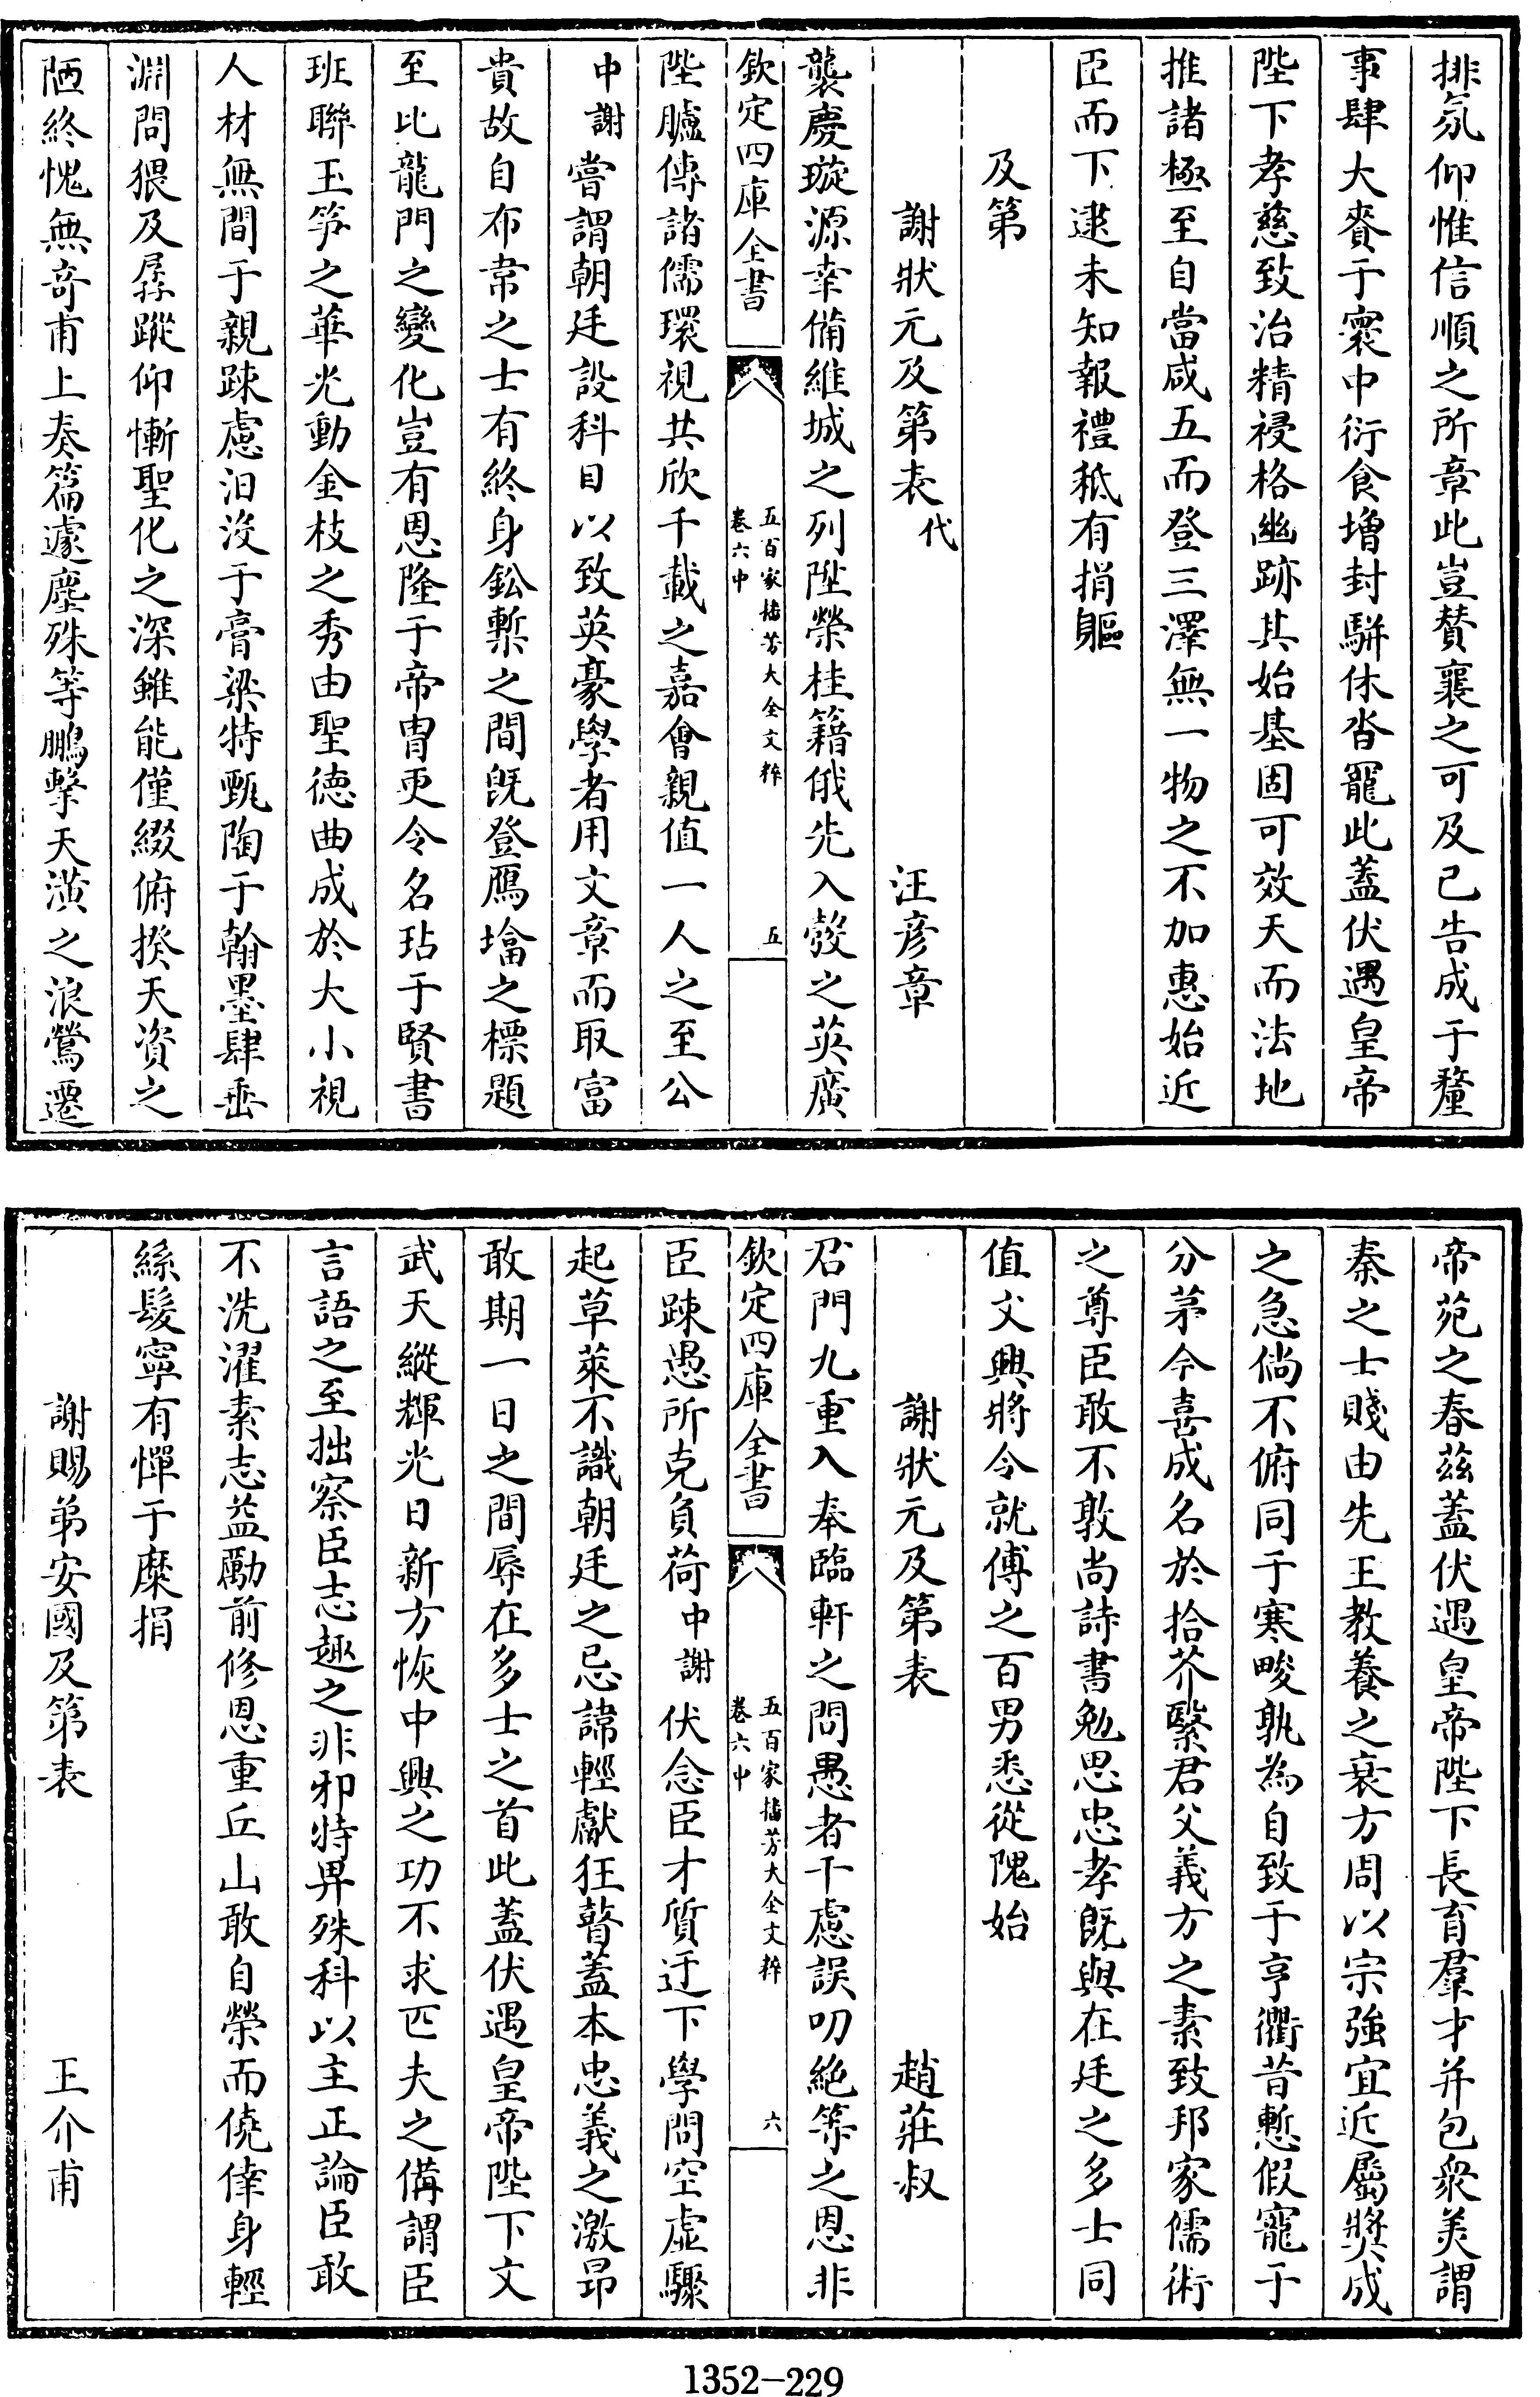 排氛仰惟信順之所章此豈賛襄之可及已告成于釐
事肆大賚于寰中衍食增封駢休沓寵此蓋伏遇皇帝
陛下孝慈致治精祲格幽跡其始基固可效天而法地
推諸極至自當咸五而登三澤無一物之不加惠始近
臣而下逮未知報禮秪有捐軀
及第
謝狀元及第表代 汪彦章
襲慶璇源幸備維城之列陞榮桂籍俄先入彀之英廣
欽定四庫全書 五百家播芳大全文粹 卷六中 五
陛臚傳諸儒環視共欣千載之嘉會親值一人之至公
中謝嘗謂朝廷設科目以致英豪學者用文章而取富
貴故自布韋之士有終身鈆槧之間既登鴈塔之標題
至比龍門之變化豈有恩隆于帝胄更令名玷于賢書
班聯玉笋之華光動金枝之秀由聖徳曲成於大小視
人材無間于親疎慮汩沒于膏粱特甄陶于翰墨肆垂
淵問猥及孱蹤仰慚聖化之深雖能僅綴俯揆天資之
陋終愧無竒甫上奏篇遽塵殊等鵬擊天潢之浪鶯遷
帝苑之春兹蓋伏遇皇帝陛下長育羣才并包衆美謂
秦之士賤由先王教養之衰方周以宗強宜近屬奬成
之急倘不俯同于寒畯孰為自致于亨衢昔慙假寵于
分茅今喜成名於拾芥繄君父義方之素致邦家儒術
之尊臣敢不敦尚詩書勉思忠孝既與在廷之多士同
值文興將令就傅之百男悉從隗始
謝狀元及第表 趙莊叔
召門九重入奉臨軒之問愚者千慮誤叨絶等之恩非
欽定四庫全書 五百家播芳大全文粹 卷六中 六
臣踈愚所克負荷中謝伏念臣才質迂下學問空虚驟
起草萊不識朝廷之忌諱輕獻狂瞽蓋本忠義之激昂
敢期一日之間辱在多士之首此蓋伏遇皇帝陛下文
武天縱輝光日新方恢中興之功不求匹夫之備謂臣
言語之至拙察臣志趣之非邪特畀殊科以主正論臣敢
不洗濯素志益勵前修恩重丘山敢自榮而僥倖身輕
絲髮寧有憚于糜捐
謝賜弟安國及第表 王介甫
1352-229